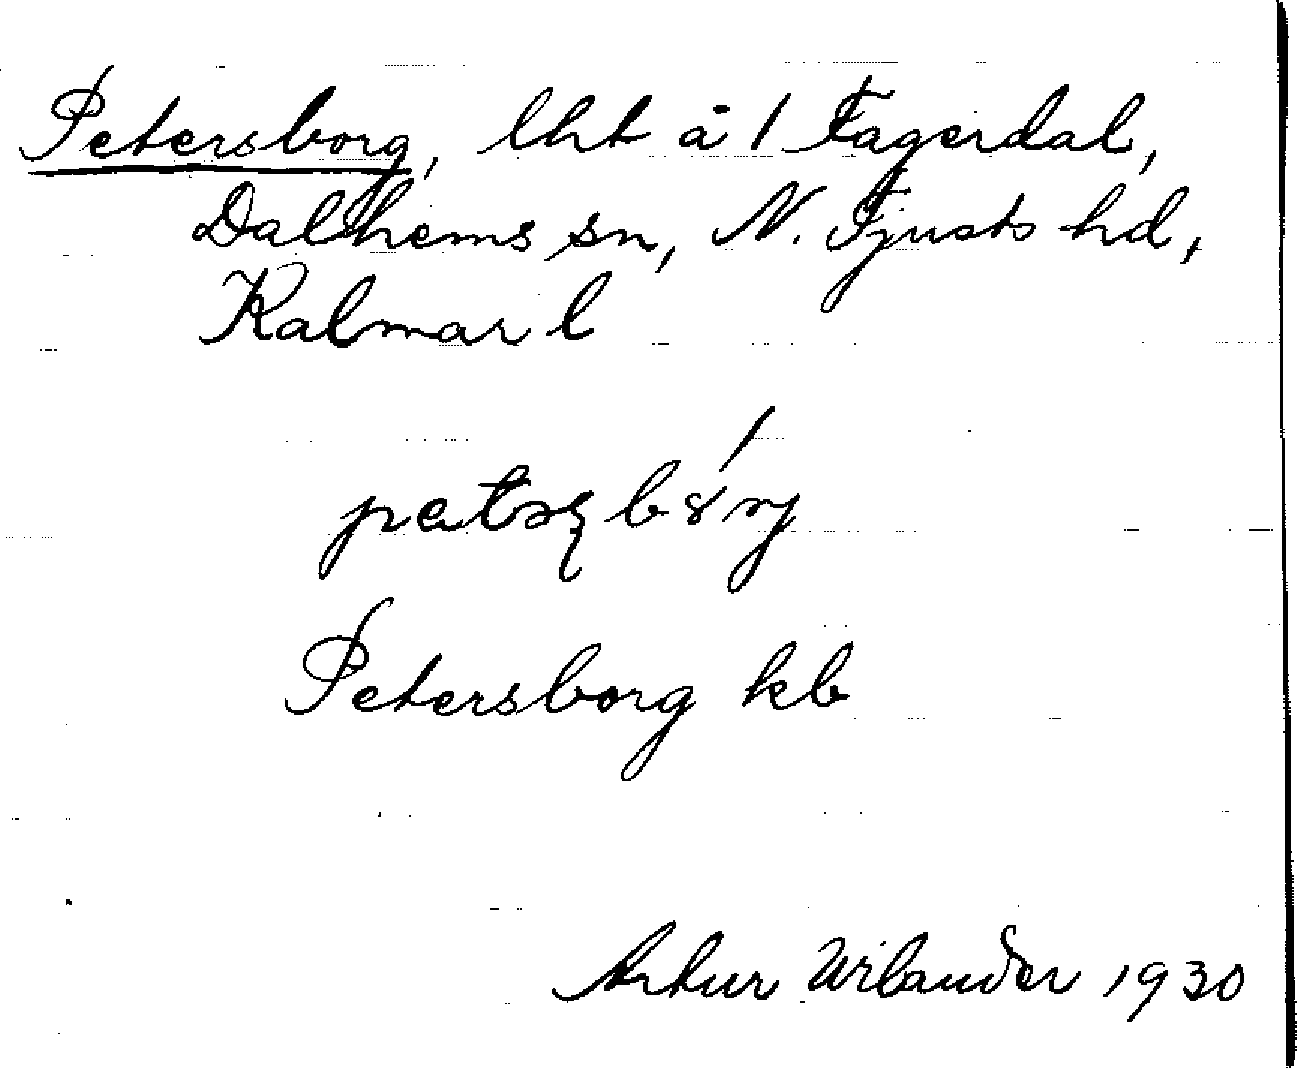 Petersborg, lht å 1 Fagerdal,
Dalhems sn, N. Tjusts hd,
Kalmar l
Petersborg kb
Artur Wilander 1930